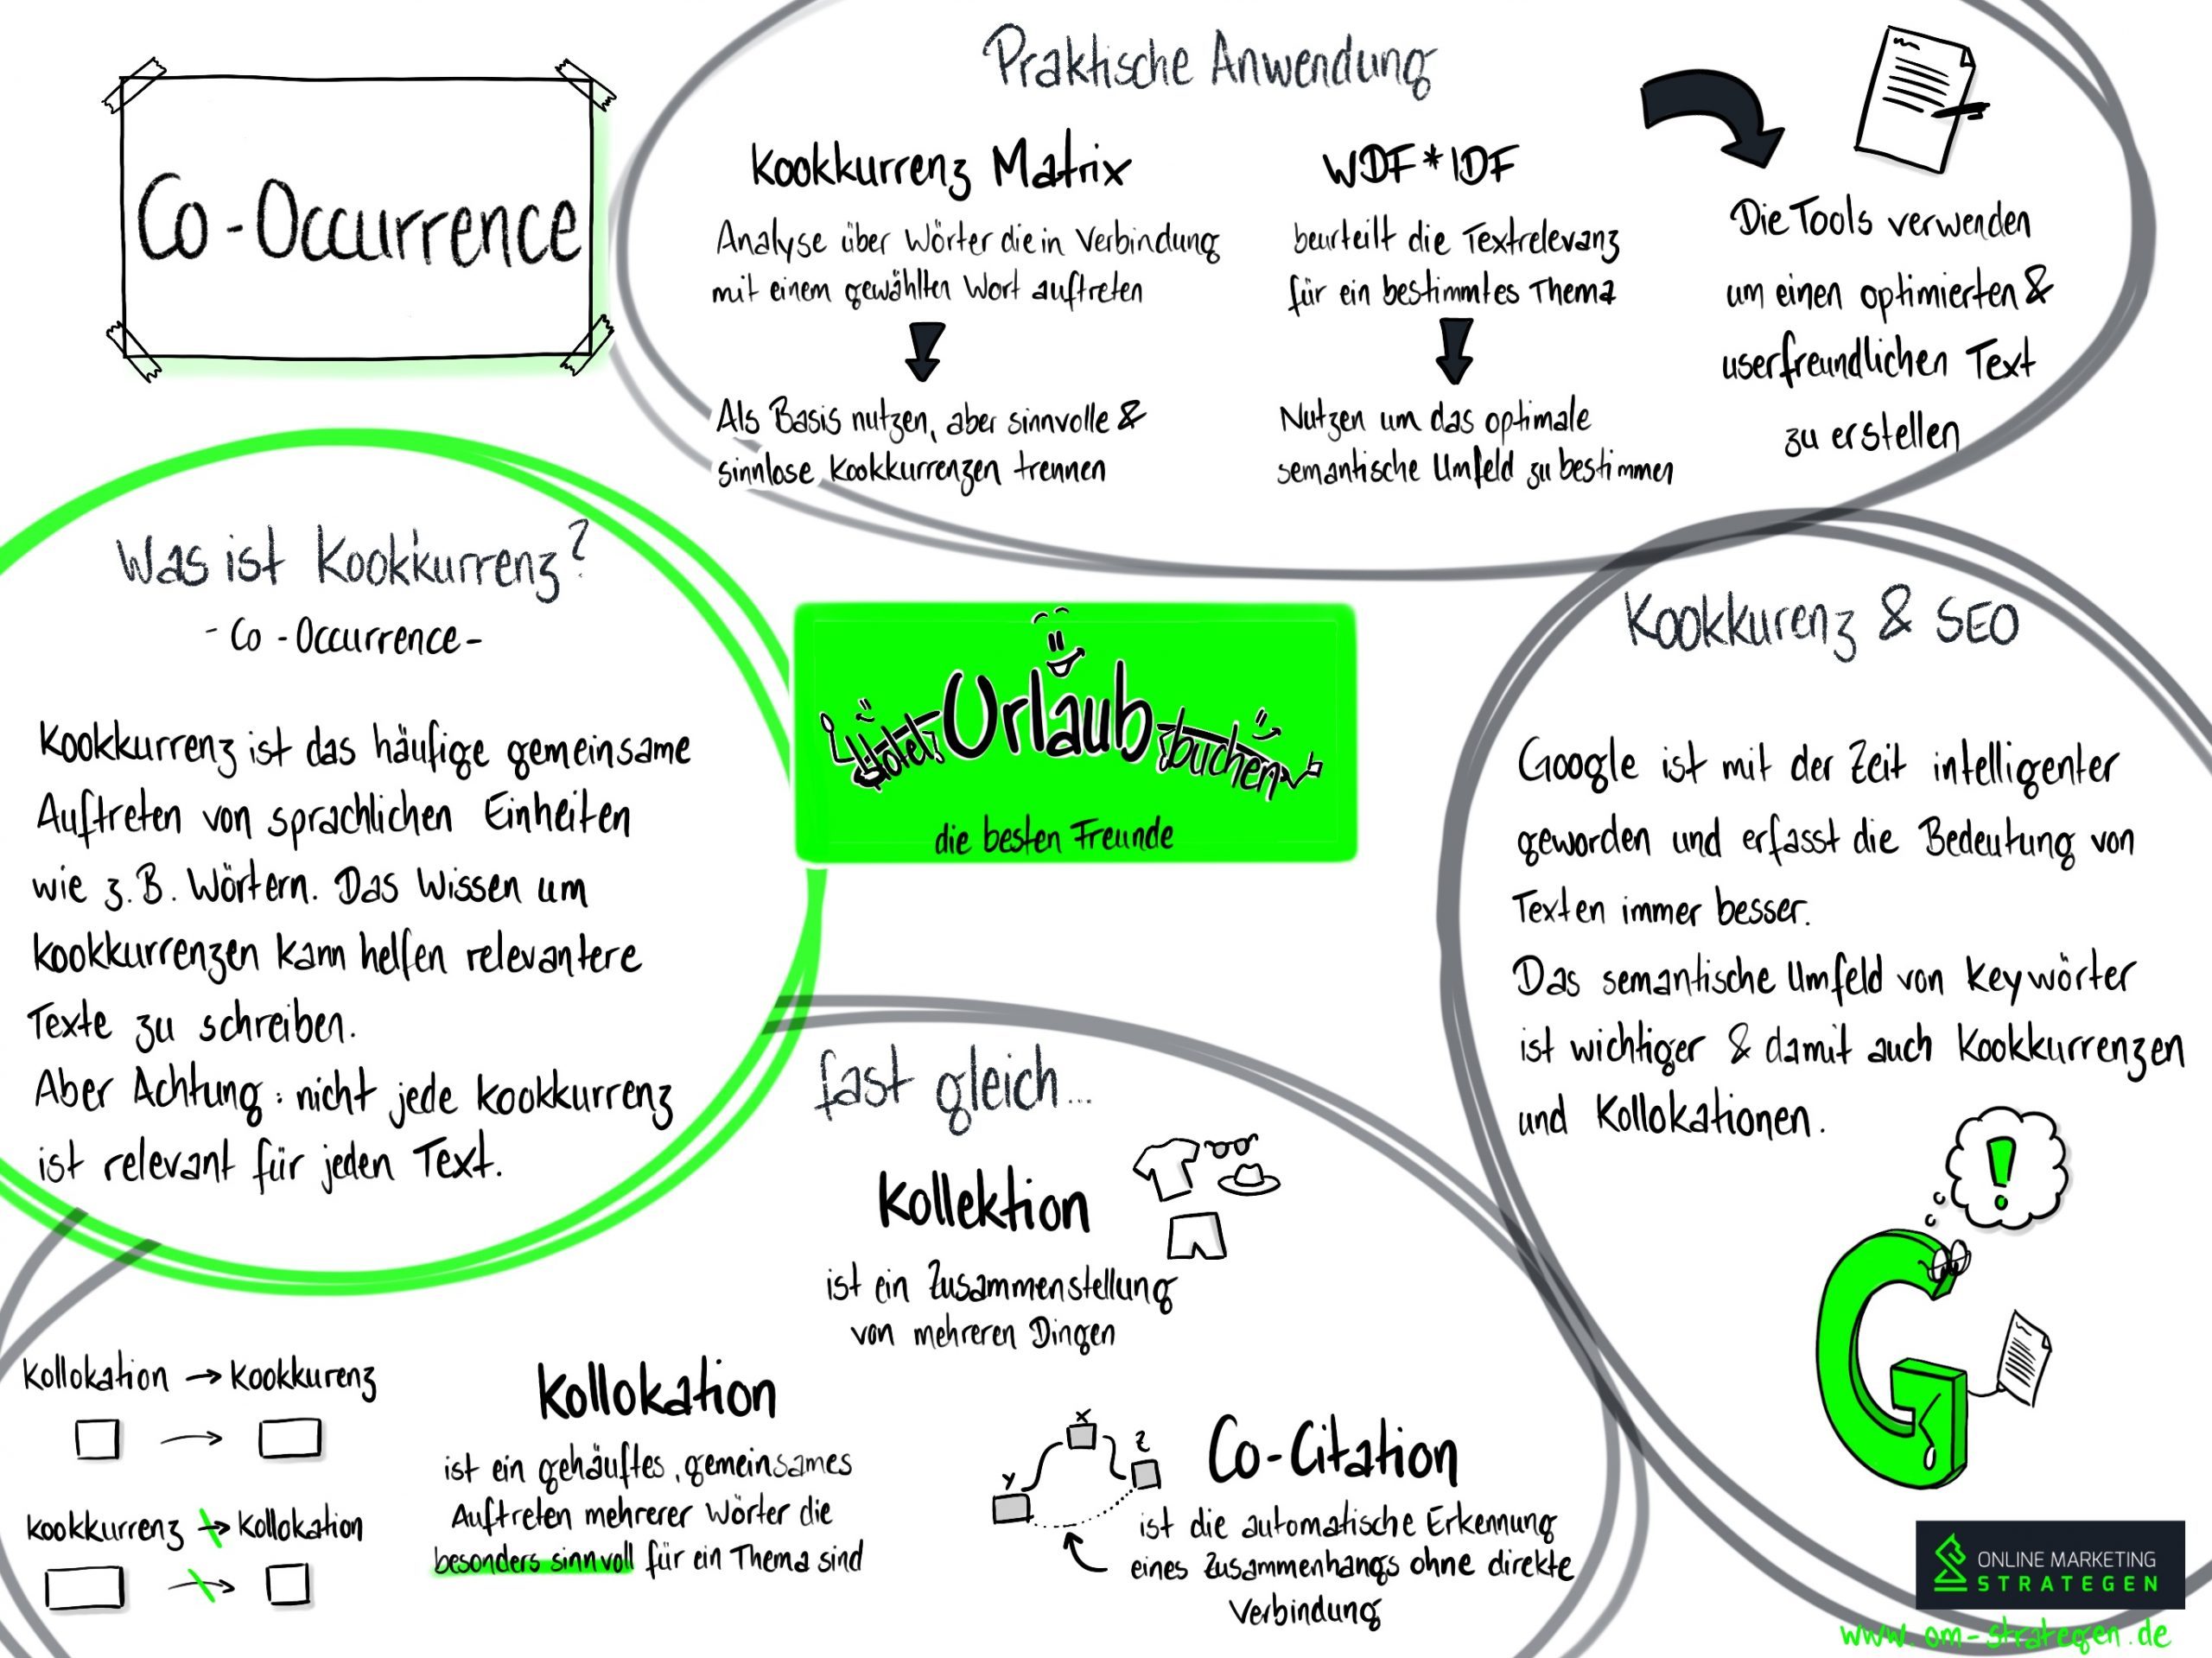 Co-Occurrence
Praktische Anwendung
Kookkurrenz Matrix
Analyse über Wörter die in Verbindung
mit einem gewählten Wort auftreten
Als Basis nutzen, aber sinnvolle &
sinnlose Kookkurrenzen trennen
WDF*IDF
beurteilt die Textrelevanz
für ein bestimmtes Thema
Nutzen um das optimale
semantische Umfeld zu bestimmen
Die Tools verwenden
um einen optimierten &
userfreundlichen Text
zu erstellen
Was ist Kookkurrenz?
- Co-Occurrence -
Kookkurrenz ist das häufige gemeinsame
Auftreten von sprachlichen Einheiten
wie z.B. Wörtern. Das Wissen um
Kookkurrenzen kann helfen relevantere
Texte zu schreiben.
Aber Achtung: nicht jede Kookkurrenz
ist relevant für jeden Text.
Hotel Urlaub buchen
die besten Freunde
Kookkurenz & SEO
Google ist mit der Zeit intelligenter
geworden und erfasst die Bedeutung von
Texten immer besser.
Das semantische Umfeld von Keywörter
ist wichtiger & damit auch Kookkurrenzen
und Kollokationen.
!
G
fast gleich...
Kollektion
ist ein Zusammenstellung
von mehreren Dingen
Kollokation → Kookkurenz
Kookkurrenz → Kollokation
Kollokation
ist ein gehäuftes, gemeinsames
Auftreten mehrerer Wörter die
besonders sinnvoll für ein Thema sind
X
Y
Z
Co-Citation
ist die automatische Erkennung
eines Zusammenhangs ohne direkte
Verbindung
ONLINE MARKETING
STRATEGEN
www.om-strategen.de